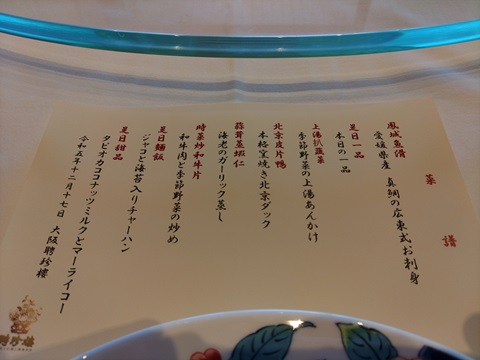 菜譜
鳳城魚滑
愛媛県産 真鯛の広東式お刺身
是日一品
本日の一品
上湯扒蔬菜
季節野菜の上湯あんかけ
北京皮片鴨
本格窯焼き北京ダック
蒜茸蒸蝦仁
海老のガーリック蒸し
時菜炒和牛片
和牛肉と季節野菜の炒め
是日麺飯
ジャコと海苔入りチャーハン
是日甜品
タピオカココナッツミルクとマーライコー
令和五年十二月十七日 大阪聘珍樓